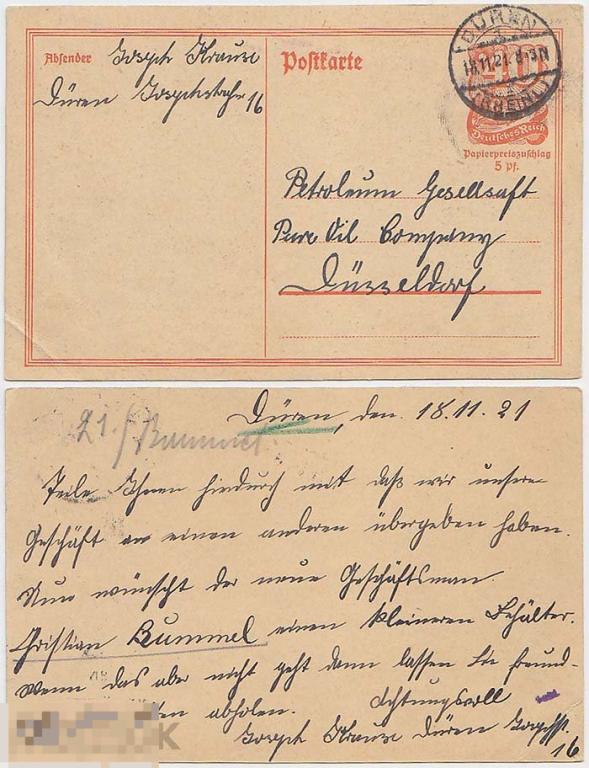 Absender Joseph Krause
Düren Josephstraße 16
Postkarte
DÜREN
18.11.21. 8-9N
(RHEINL.)
Deutsches Reich
Papierpreiszuschlag
5 Pf.
Petroleum Gesellsaft
Pure Oil Company
Düsseldorf
21/Bummel
Düren, den 18.11.21
Teile Ihnen hiedurch mit daß wir unser
Geschäft an einen anderen übergeben haben.
Nun wünscht der neue Geschäftsman.
Christian Bummel einen kleineren Behälter.
Wenn das aber nicht geht dann lassen Sie freund-
abholen. Achtungsvoll
Joseph Krause Düren Josephst.
16